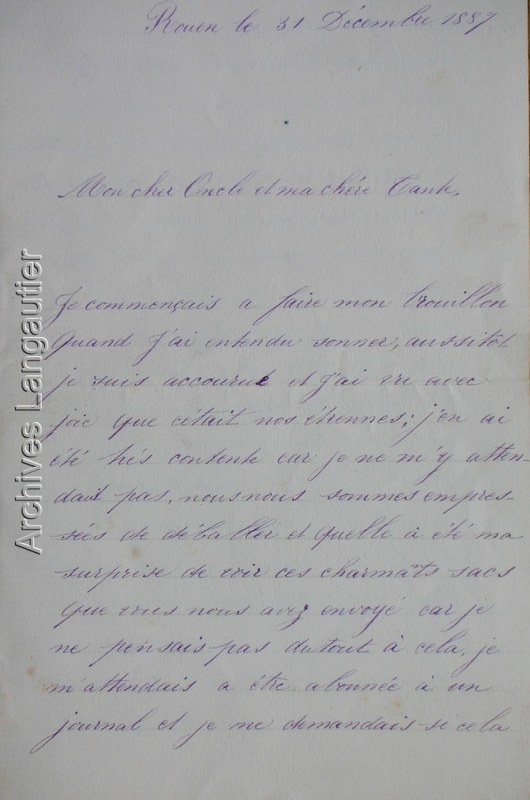 Rouen le 31 Décembre 1887
Mon cher Oncle et ma chère Tante,
Je commençais a faire mon brouillon
quand j'ai entendu sonner, aussitôt
je suis accourue et j'ai vu avec
joie que cétait nos étrennes; j'en ai
été très contente car je ne m'y atten-
dait pas, nous nous sommes empres-
sées de déballer et quelle à été ma
surprise de voir ces charmats sacs
que vous nous avez envoyé car je
ne pensais pas du tout à cela, je
m'attendais a être abonnée à un
journal et je me demandais si cela
Archives Langautier